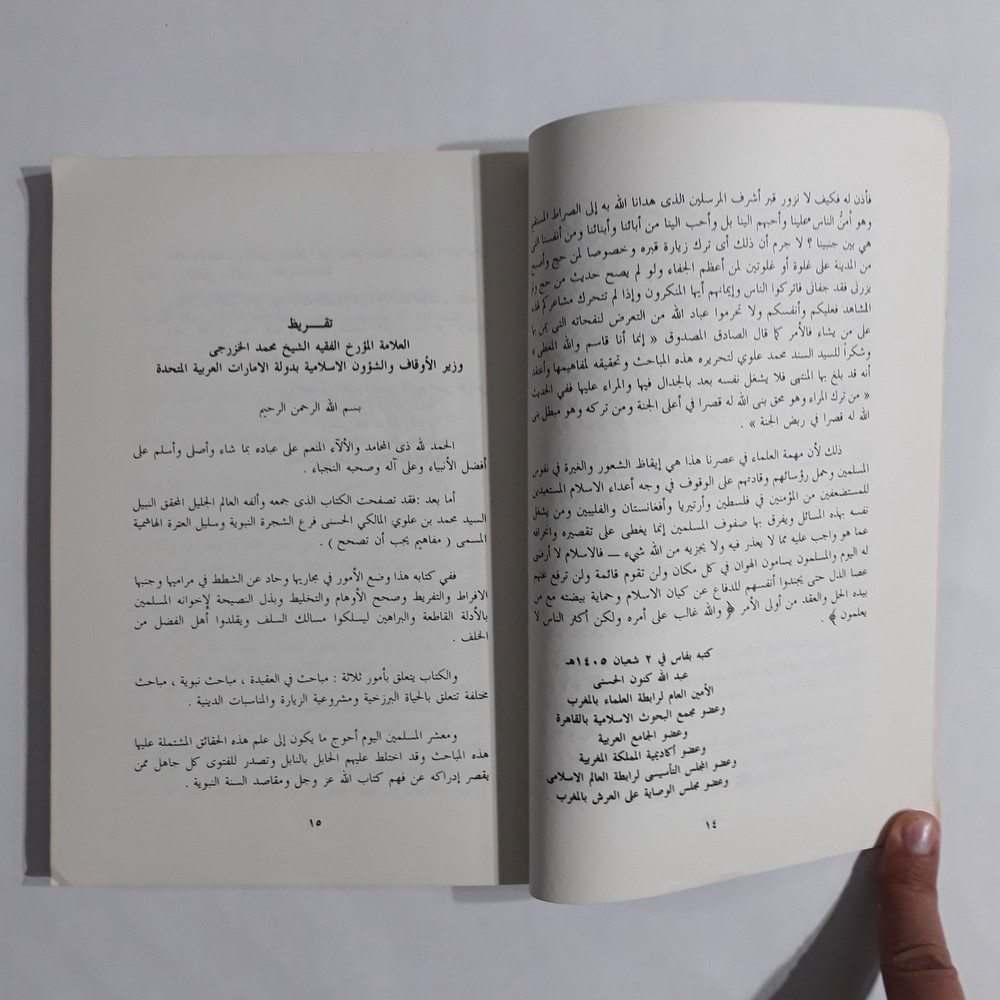 فأذن له فكيف لا نزور قبر أشرف المرسلين الذى هدانا الله به إلى الصراط
وهو أمنُّ الناس علينا وأحبهم الينا بل وأحب الينا من أبائنا وأبنائنا ومن أنفسنا
هي بين جنبينا ؟ لا جرم أن ذلك أى ترك زيارة قبره و خصوصا لمن حج وأصبح
من المدينة على غلوة أو غلوتين لمن أعظم الجفاء ولو لم يصح حديث من حج ولم
يزرنى فقد جفانى فاتركوا الناس وإيمانهم أيها المنكرون وإذا لم تتحرك مشاعركم
المشاهد فعليكم وأنفسكم ولا تحرموا عباد الله من التعرض لنفحاته التى يمن بها
على من يشاء فالأمر كما قال الصادق المصدوق « إنما أنا قاسم والله المعطى »
وشكراً للسيد السند محمد علوي لتحريره هذه المباحث وتحقيقه لمفاهيمها وأعتقد
أنه قد بلغ بها المنتهى فلا يشغل نفسه بعد بالجدال فيها والمراء عليها ففي الحديث
« من ترك المراء وهو محق بنى الله له قصرا في أعلى الجنة ومن تركه وهو مبطل بنى
الله له قصرا في ربض الجنة » .
ذلك لأن مهمة العلماء في عصرنا هذا هي إيقاظ الشعور والغيرة في نفوس
المسلمين وحمل رؤسائهم وقادتهم على الوقوف في وجه أعداء الاسلام المستعبدين
للمستضعفين من المؤمنين في فلسطين وأرتيريا وأفغانستان والفليبين ومن يشغل
نفسه بهذه المسائل ويفرق بها صفوف المسلمين إنما يغطى على تقصيره وانحرافه
عما هو واجب عليه مما لا يعذر فيه ولا يجزيه من الله شيء ـــ فالاسلام لا أرضى
له اليوم والمسلمون يسامون الهوان في كل مكان ولن تقوم قائمة ولن ترفع عنهم
عصا الذل حتى يجندوا أنفسهم للدفاع عن كيان الاسلام وحماية بيضته مع من
بيده الحل والعقد من أولى الأمر ﴿ والله غالب على أمره ولكن أكثر الناس لا
يعلمون ﴾ .
كتبه بفاس في ٢ شعبان ١٤٠٥هـ
عبد الله كنون الحسنى
الأمين العام لرابطة العلماء بالمغرب
وعضو مجمع البحوث الاسلامية بالقاهرة
وعضو الجامع العربية
وعضو أكاديمية المملكة المغربية
وعضو المجلس التأسيسى لرابطة العالم الاسلامى
وعضو مجلس الوصاية على العرش بالمغرب
١٤
تقـــريظ
العلامة المؤرخ الفقيه الشيخ محمد الخزرجى
وزير الأوقاف والشؤون الاسلامية بدولة الامارات العربية المتحدة
بسم الله الرحمن الرحيم
الحمد لله ذى المحامد والآلآء المنعم على عباده بما شاء وأصلى وأسلم على
أفضل الأنبياء وعلى آله وصحبه النجباء .
أما بعد : فقد تصفحت الكتاب الذى جمعه وألفه العالم الجليل المحقق النبيل
السيد محمد بن علوي المالكي الحسنى فرع الشجرة النبوية وسليل العترة الهاشمية
المسمى ( مفاهيم يجب أن تصحح ) .
ففي كتابه هذا وضع الأمور في مجاريها وحاد عن الشطط في مراميها وجنبها
الافراط والتفريط وصحح الأوهام والتخليط وبذل النصيحة لإخوانه المسلمين
بالأدلة القاطعة والبراهين ليسلكوا مسالك السلف ويقلدوا أهل الفضل من
الخلف .
والكتاب يتعلق بأمور ثلاثة : مباحث في العقيدة ، مباحث نبوية ، مباحث
مختلفة تتعلق بالحياة البرزخية ومشروعية الزيارة والمناسبات الدينية .
ومعشر المسلمين اليوم أحوج ما يكون إلى علم هذه الحقائق المشتملة عليها
هذه المباحث وقد اختلط عليهم الحابل بالنابل وتصدر للفتوى كل جاهل ممن
يقصر إدراكه عن فهم كتاب الله عز وجل ومقاصد السنة النبوية .
١٥